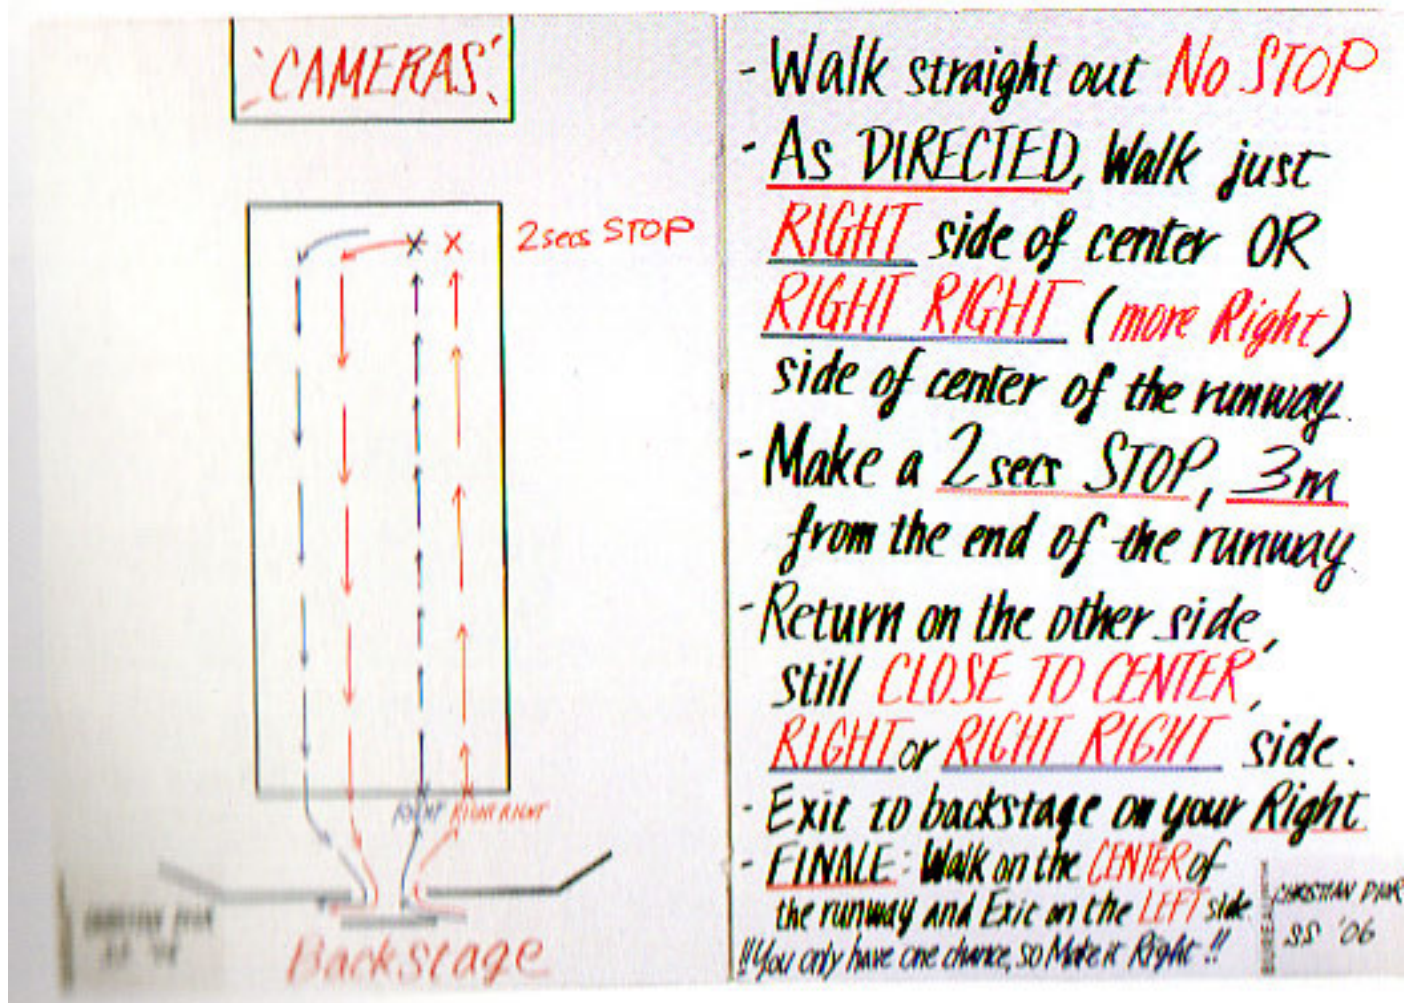 'CAMERAS'
2secs STOP
RIGHT RIGHT RIGHT
Backstage
- Walk straight out No STOP
- As DIRECTED, Walk just
RIGHT side of center OR
RIGHT RIGHT (more Right)
side of center of the runway.
- Make a 2 secs STOP, 3m
from the end of the runway
- Return on the other side,
still CLOSE TO CENTER,
RIGHT or RIGHT RIGHT side.
- Exit to backstage on your Right
- FINALE: Walk on the CENTER of
the runway and Exit on the LEFT side.
!! You only have one chance, so Make it Right !!
BUREAU
CHRISTIAN DIOR
SS '06